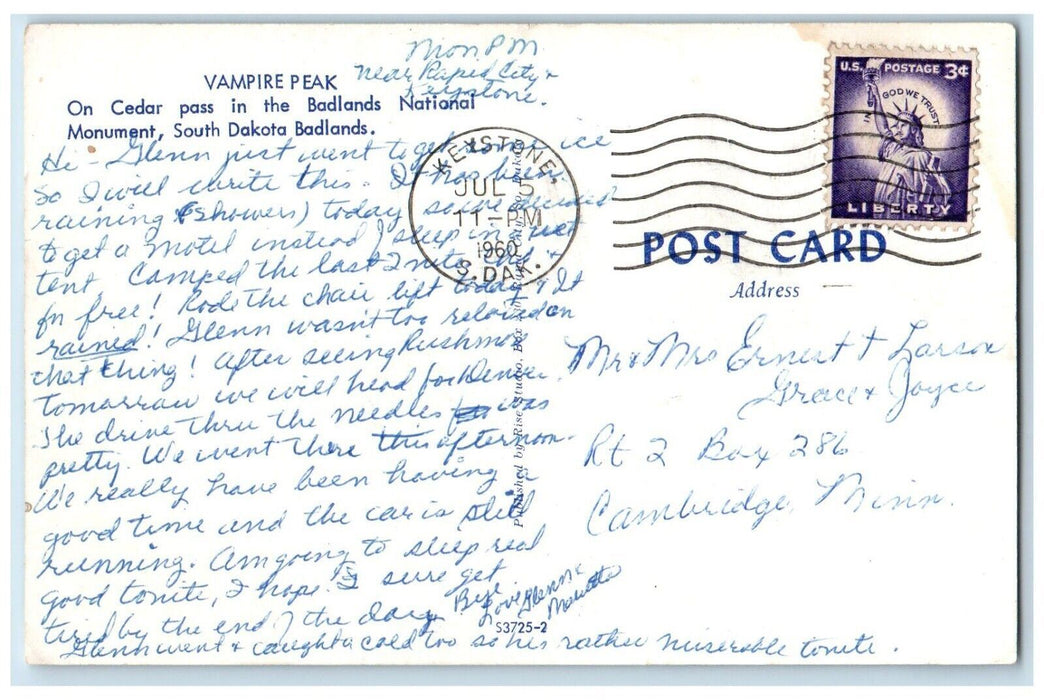 Mon. P.M.
Near Rapid City &
Keystone.
VAMPIRE PEAK
On Cedar pass in the Badlands National
Monument, South Dakota Badlands.
Hi - Glenn just went to get some ice
so I will write this. It has been
raining (showers) today so we decided
to get a motel instead of sleep in a wet
tent. Camped the last 2 nites and
for free! Rode the chair lift today & It
rained! Glenn wasn't too relaxed on
that thing! After seeing Rushmore
tomarrow we will head for Denver.
The drive thru the needles was
pretty. We went there this afternoon.
We really have been having a
good time and the car is still
running. Am going to sleep real
good tonite, I hope. I sure get
tired by the end of the day.
Bye
Love Glenn &
Glenn went & caught a cold too so he's rather miserable tonite.
S3725-2
Published by Rise Studio, Box
KEYSTONE
JUL 5
11-PM
1960
S. DAK.
U.S. POSTAGE 3¢
IN GOD WE TRUST
LIBERTY
POST CARD
Address
Mr & Mrs Ernest Larson
Grace & Joyce
Rt 2 Box 286
Cambridge, Minn.